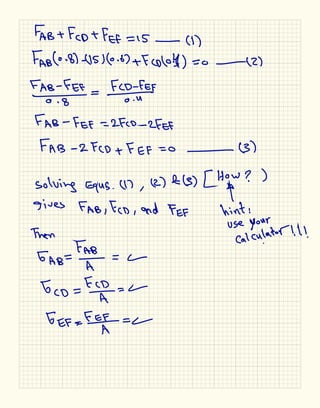 F_AB + F_CD + F_EF = 15 — (1)
F_AB(0.8) - (15)(0.6) + F_CD(0.4) = 0 — (2)
F_AB - F_EF / 0.8 = F_CD - F_EF / 0.4
F_AB - F_EF = 2F_CD - 2F_EF
F_AB - 2F_CD + F_EF = 0 — (3)
Solving Equs. (1), (2) & (3) [How? )
gives F_AB, F_CD, and F_EF
hint:
use your
calculator!!!
Then
σ_AB = F_AB / A = ✓
σ_CD = F_CD / A = ✓
σ_EF = F_EF / A = ✓